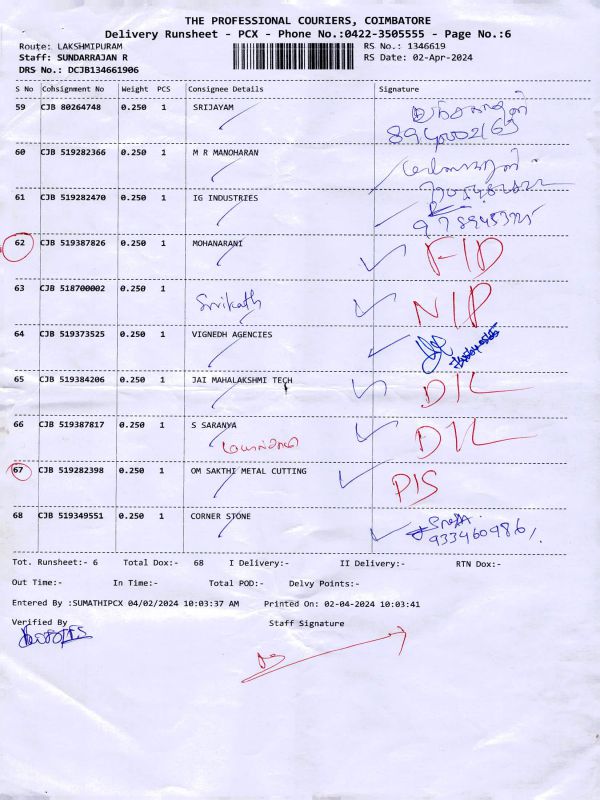 THE PROFESSIONAL COURIERS, COIMBATORE
Delivery Runsheet - PCX - Phone No.:0422-3505555 - Page No.:6
Route: LAKSHMIPURAM RS No.: 1346619
Staff: SUNDARRAJAN R RS Date: 02-Apr-2024
DRS No.: DCJB134661906
S No Cohsignment No Weight PCS Consignee Details Signature
59 CJB 80264748 0.250 1 SRIJAYAM
60 CJB 519282366 0.250 1 M R MANOHARAN
61 CJB 519282470 0.250 1 IG INDUSTRIES
62 CJB 519387826 0.250 1 MOHANARANI
63 CJB 518700002 0.250 1 Srrikath NIP
64 CJB 519373525 0.250 1 VIGNEDH AGENCIES
65 CJB 519384206 0.250 1 JAI MAHALAKSHMI TECH D/L
66 CJB 519387817 0.250 1 S SARANYA D/L
67 CJB 519282398 0.250 1 OM SAKTHI METAL CUTTING P/S
68 CJB 519349551 0.250 1 CORNER STONE
9334609861
Tot. Runsheet:- 6 Total Dox:- 68 I Delivery:- II Delivery:- RTN Dox:-
Out Time:- In Time:- Total POD:- Delvy Points:-
Entered By :SUMATHIPCX 04/02/2024 10:03:37 AM Printed On: 02-04-2024 10:03:41
Verified By Staff Signature